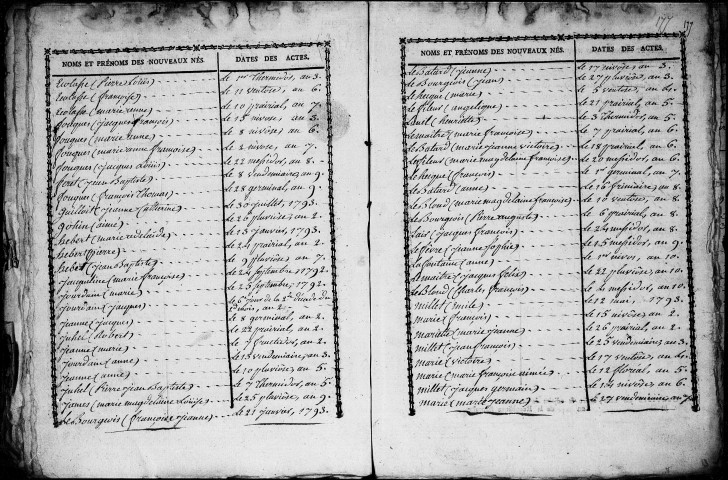 NOMS ET PRÉNOMS DES NOUVEAUX NÉS. DATES DES ACTES.
(Pierre Louis) le 1er Thermidor, an 3.
(françoise) le 11 ventose, an 6.
(marie anne) le 10 prairial, an 7.
fouques (jacques françois) le 15 nivose, an 3.
fouques (marie anne) le 8 nivose, an 6.
fouques (marie anne françoise) le 2 nivose, an 7.
fouques (jacques Louis) le 22 messidor, an 8.
(jean Baptiste) le 8 vendemiaire, an 9.
fouques (françois Thomas) le 28 germinal, an 9.
(jeanne Catherine) le 30 juillet, 1793.
gohier (aimé) le 26 pluviose, an 2.
hebert (marie adelaide) le 13 janvier, 1793.
hebert (pierre) le 24 prairial, an 2.
hebert (jean Baptiste) le 9 pluviose, an 7.
jacqueline (marie françoise) le 24 septembre, 1792.
jourdain (marie) le 25 septembre, 1792.
jourdain (jacques) le 6e jour de la 2e décade du 2e mois, an 2.
jeanne (jacques) le 8 germinal, an 2.
juhel (Robert) le 22 prairial, an 2.
jeanne (marie) le 9 fructidor, an 2.
jourdain (anne) le 13 vendemiaire, an 3.
jeanne (aimé) le 10 pluviose, an 5.
juhel (Pierre jean Baptiste) le 7 Thermidor, an 5.
james (marie magdelaine Louise) le 25 pluviose, an 9.
Le Bourgeois (françoise jeanne) le 21 janvier, 1793.
177 177
NOMS ET PRÉNOMS DES NOUVEAUX NÉS. DATES DES ACTES.
Le Batard (jeanne) le 17 nivose, an 3.
Le Bourgeois (jean) le 27 pluviose, an 3.
(marie) le 5 ventose, an 6.
Le fileur (angelique) le 21 prairial, an 5.
(henriette) le 3 Thermidor, an 5.
Lemaitre (marie françoise) le 7 prairial, an 6.
Le Batard (marie jeanne victoire) le 18 prairial, an 6.
Le fileur (marie magdelaine françoise) le 20 messidor, an 6.
(françois) le 1er germinal, an 7.
Le Batard (anne) le 16 frimaire, an 8.
Le Blond (marie magdelaine françoise) le 10 ventose, an 8.
Le Bourgeois (Pierre auguste) le 6 prairial, an 8.
Lais (jacques françois) le 24 messidor, an 8.
Le fèvre (jeanne sophie) le 25 messidor, an 9.
La fontaine (anne) le 1er nivos, an 10.
Le maitre (jacques felix) le 22 pluviose, an 10.
Le Blond (Charles françois) le 4 messidor, an 10.
millet (émile) le 12 mai, 1793.
marie (françois) le 15 nivose, an 2.
mariette (marie jeanne) le 26 prairial, an 2.
millet (jean françois) le 25 vendemiaire, an 3.
marie (victoire) le 17 ventose, an 4.
marie (marie françoise aimée) le 12 floréal, an 5.
millet (jacques germain) le 14 nivose, an 6.
marie (marie jeanne) le 27 vendemiaire, an 7.